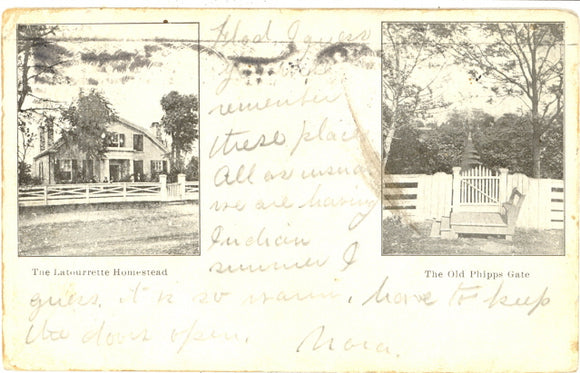 Glad, I guess
you
remember
these places
All as usual
we are having
Indian
summer I
guess, it is so warm, have to keep
the doors open.
Nora.
The Latourrette Homestead
The Old Phipps Gate